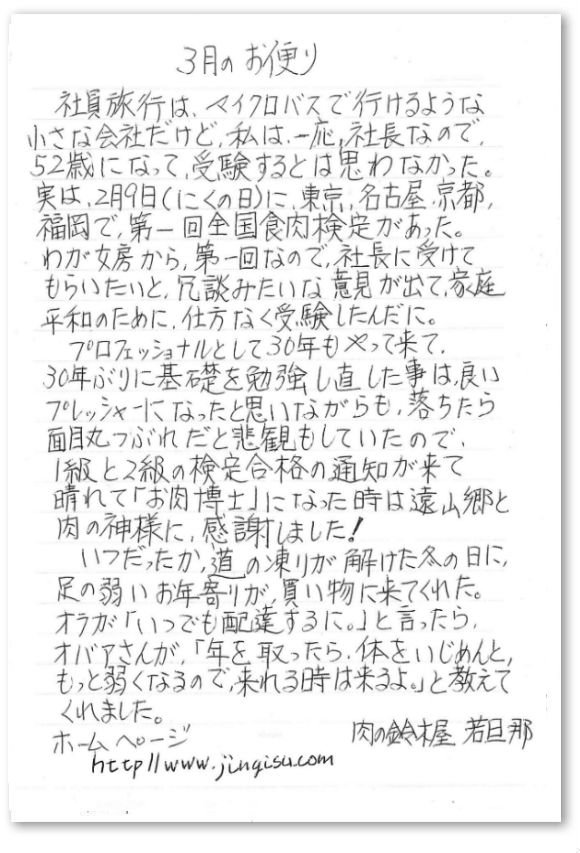 3月のお便り
社員旅行は、マイクロバスで行けるような
小さな会社だけど、私は、一応、社長なので、
52歳になって、受験するとは思わなかった。
実は、2月9日(にくの日)に、東京、名古屋、京都、
福岡で、第一回全国食肉検定があった。
わが女房から、第一回なので、社長に受けて
もらいたいと、冗談みたいな意見が出て、家庭
平和のために、仕方なく受験したんだに。
プロフェッショナルとして30年もやって来て、
30年ぶりに基礎を勉強し直した事は、良い
プレッシャーになったと思いながらも、落ちたら
面目丸つぶれだと悲観もしていたので、
1級と2級の検定合格の通知が来て
晴れて「お肉博士」になった時は遠山郷と
肉の神様に、感謝しました!
いつだったか、道の凍りが解けた冬の日に、
足の弱いお年寄りが、買い物に来てくれた。
オラが「いつでも配達するに。」と言ったら、
オバアさんが、「年を取ったら、体をいじめんと、
もっと弱くなるので、来れる時は来るよ。」と教えて
くれました。
肉の鈴木屋 若旦那
ホームページ
http//www.jingisu.com